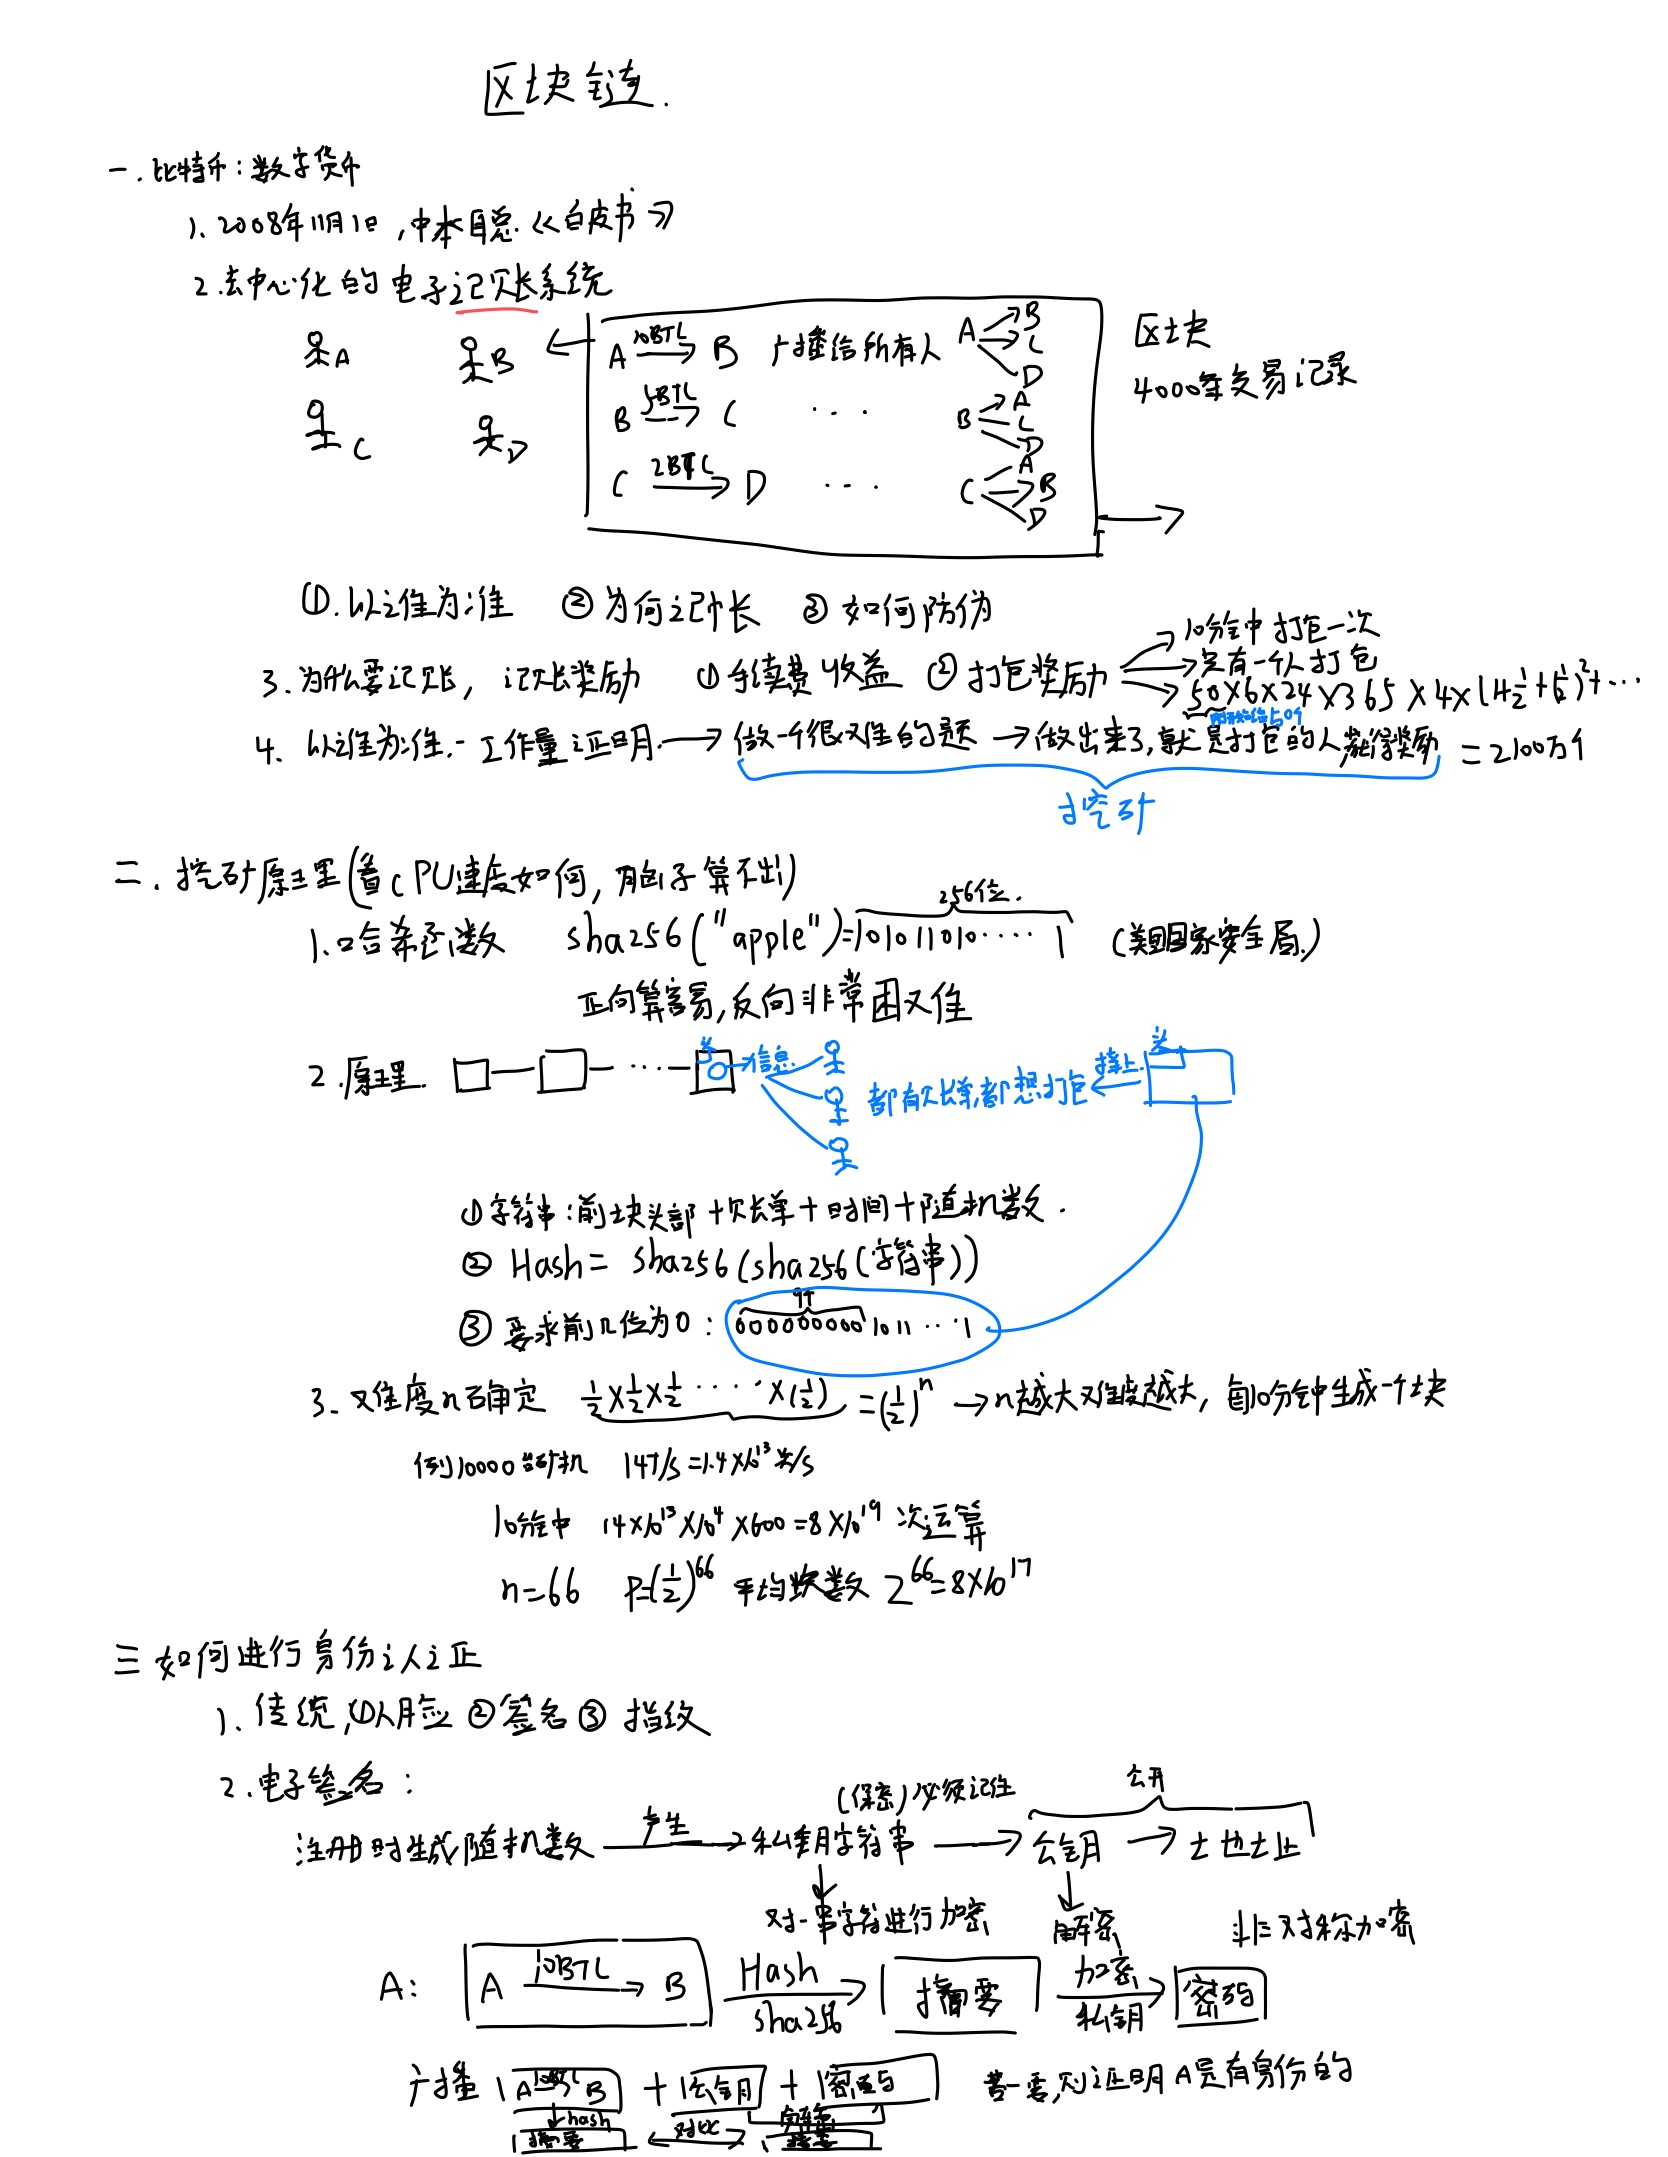 区块链.
一.比特币:数字货币
1.2008年11月1日,中本聪.《白皮书》
2.去中心化的电子记账系统
A B
C D
A 10BTC B 广播给所有人 A B C D
B 5BTC C ··· B A C D
C 2BTC D ··· C A B D
区块
4000条交易记录
①.以谁为准 ②为何记账 ③如何防伪
3.为什么要记账,记账奖励 ①手续费收益 ②打包奖励
10分钟打包一次
只有一个人打包
50×6×24×365×4×(1+½+(½)²+···
=2100万个
4.以谁为准.-工作量证明.→做一个很难的题→做出来了,就是打包的人,获得奖励
挖矿
二.挖矿原理(看CPU速度如何,用脑子算不出)
256位.
1.哈希函数 sha256("apple")=101011010·····1 (美国国家安全局.)
正向算容易,反向非常困难
2.原理. 头 信息 都有账单,都想打包 接上. 头
①字符串:前块头部+账单+时间+随机数.
②Hash=sha256(sha256(字符串))
9个
③要求前n位为0:0000000001011···1
3.难度n确定 ½×½×½·····×(½)=(½)ⁿ→n越大难度越大,每10分钟生成一个块
例10000台矿机 14T/s=1.4×10¹³次/s
10分钟 14×10¹³×10⁴×600=8×10¹⁹次运算
n=66 P=(½)⁶⁶ 平均次数 2⁶⁶=8×10¹⁷
三 如何进行身份认证
1.传统,①人脸 ②签名 ③指纹
2.电子签名:
(保密)必须记住 公开
注册时生成随机数 产生→私钥字符串→公钥→地址
对一串字符进行加密 解密 非对称加密
A: A 10BTC B Hash sha256 摘要 加密 私钥 密码
广播 A 10BTC B + 公钥 + 密码 若一要,则证明A是有身份的
hash 对比 解密
摘要 摘要